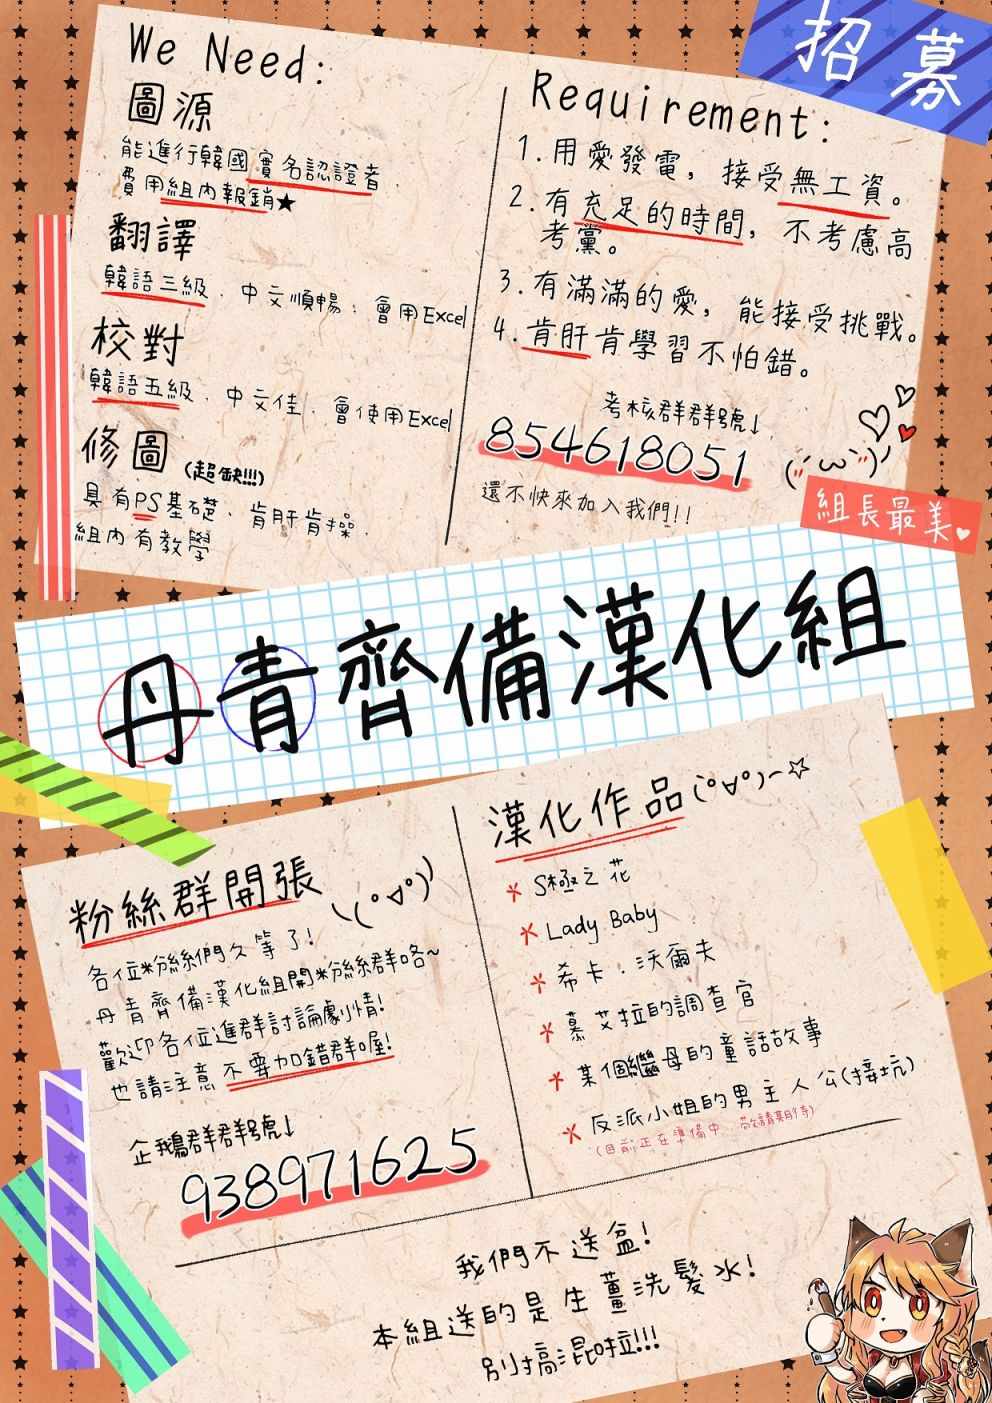 招募
We Need:
圖源
能進行韓國實名認證者.
費用組內報銷★
翻譯
韓語三級、中文順暢；會用Excel
校對
韓語五級、中文佳、會使用Excel
修圖(超缺!!!)
具有PS基礎、肯肝肯操、
組內有教學
Requirement:
1.用愛發電，接受無工資。
2.有充足的時間，不考慮高
考黨。
3.有滿滿的愛，能接受挑戰。
4.肯肝肯學習不怕錯。
考核群群號↓
854618051
還不快來加入我們!!
組長最美
丹青齊備漢化組
粉絲群開張
各位粉絲們久等了!
丹青齊備漢化組開粉絲群咯~
歡迎各位進群討論劇情!
也請注意不要加錯群喔!
企鵝群群號↓
938971625
漢化作品(°∀°)~☆
S極之花
Lady Baby
希卡．沃爾夫
慕艾拉的調查官
某個繼母的童話故事
反派小姐的男主人公(接坑)
(目前正在準備中，敬請期待)
我們不送盆!
本組送的是生薑洗髮水!
別搞混啦!!!